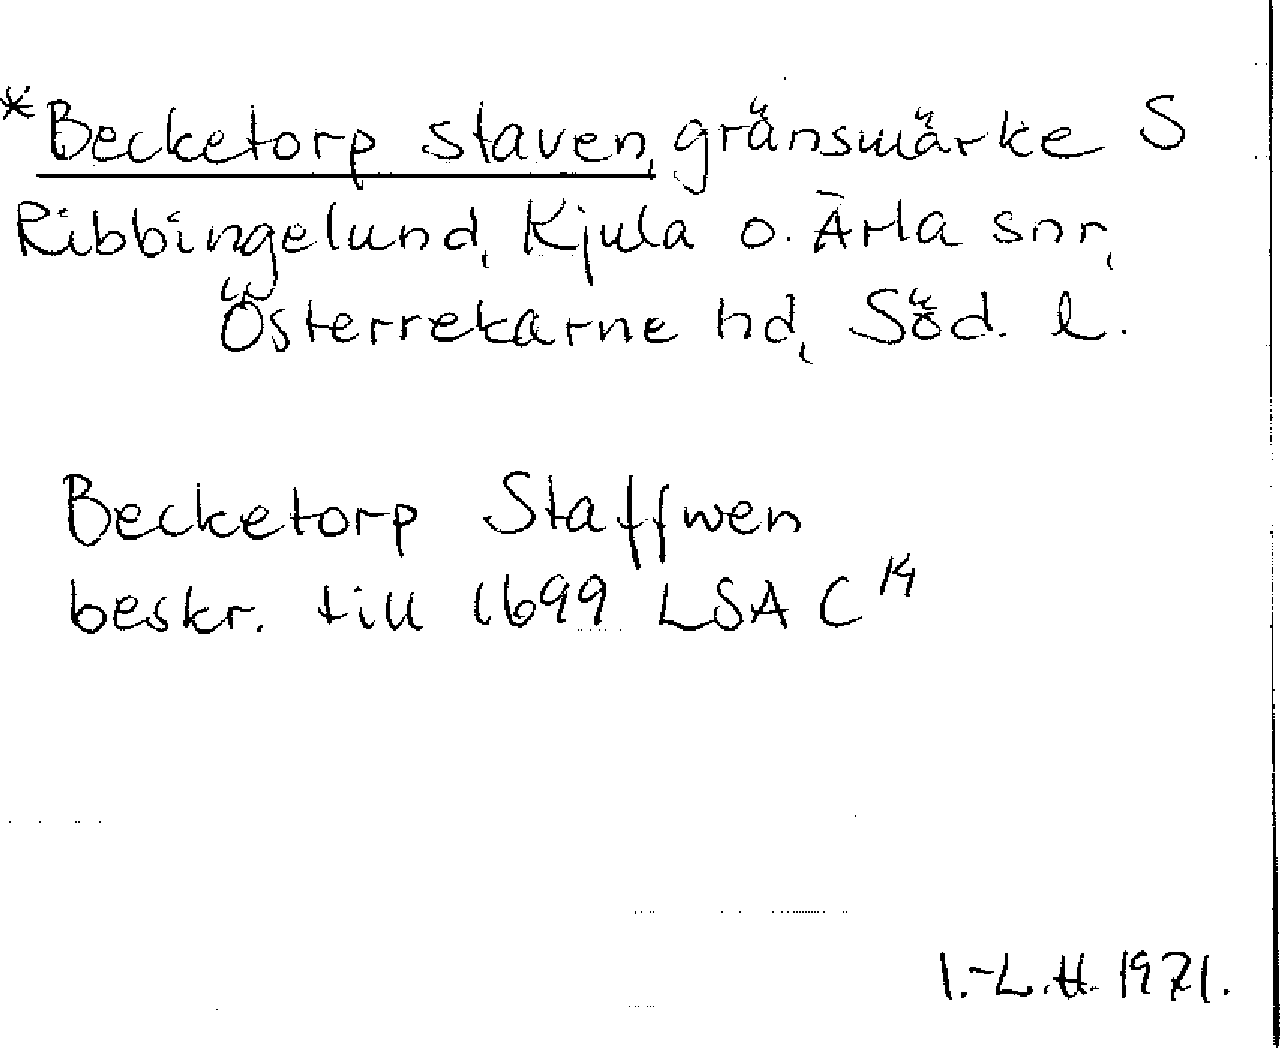 *Becketorp staven, gränsmärke S
Ribbingelund, Kjula o. Ärla snr,
Österrekarne hd, Söd. l.
Becketorp Staffwen
beskr. till 1699 LSA C 14
I.-L.H. 1971.